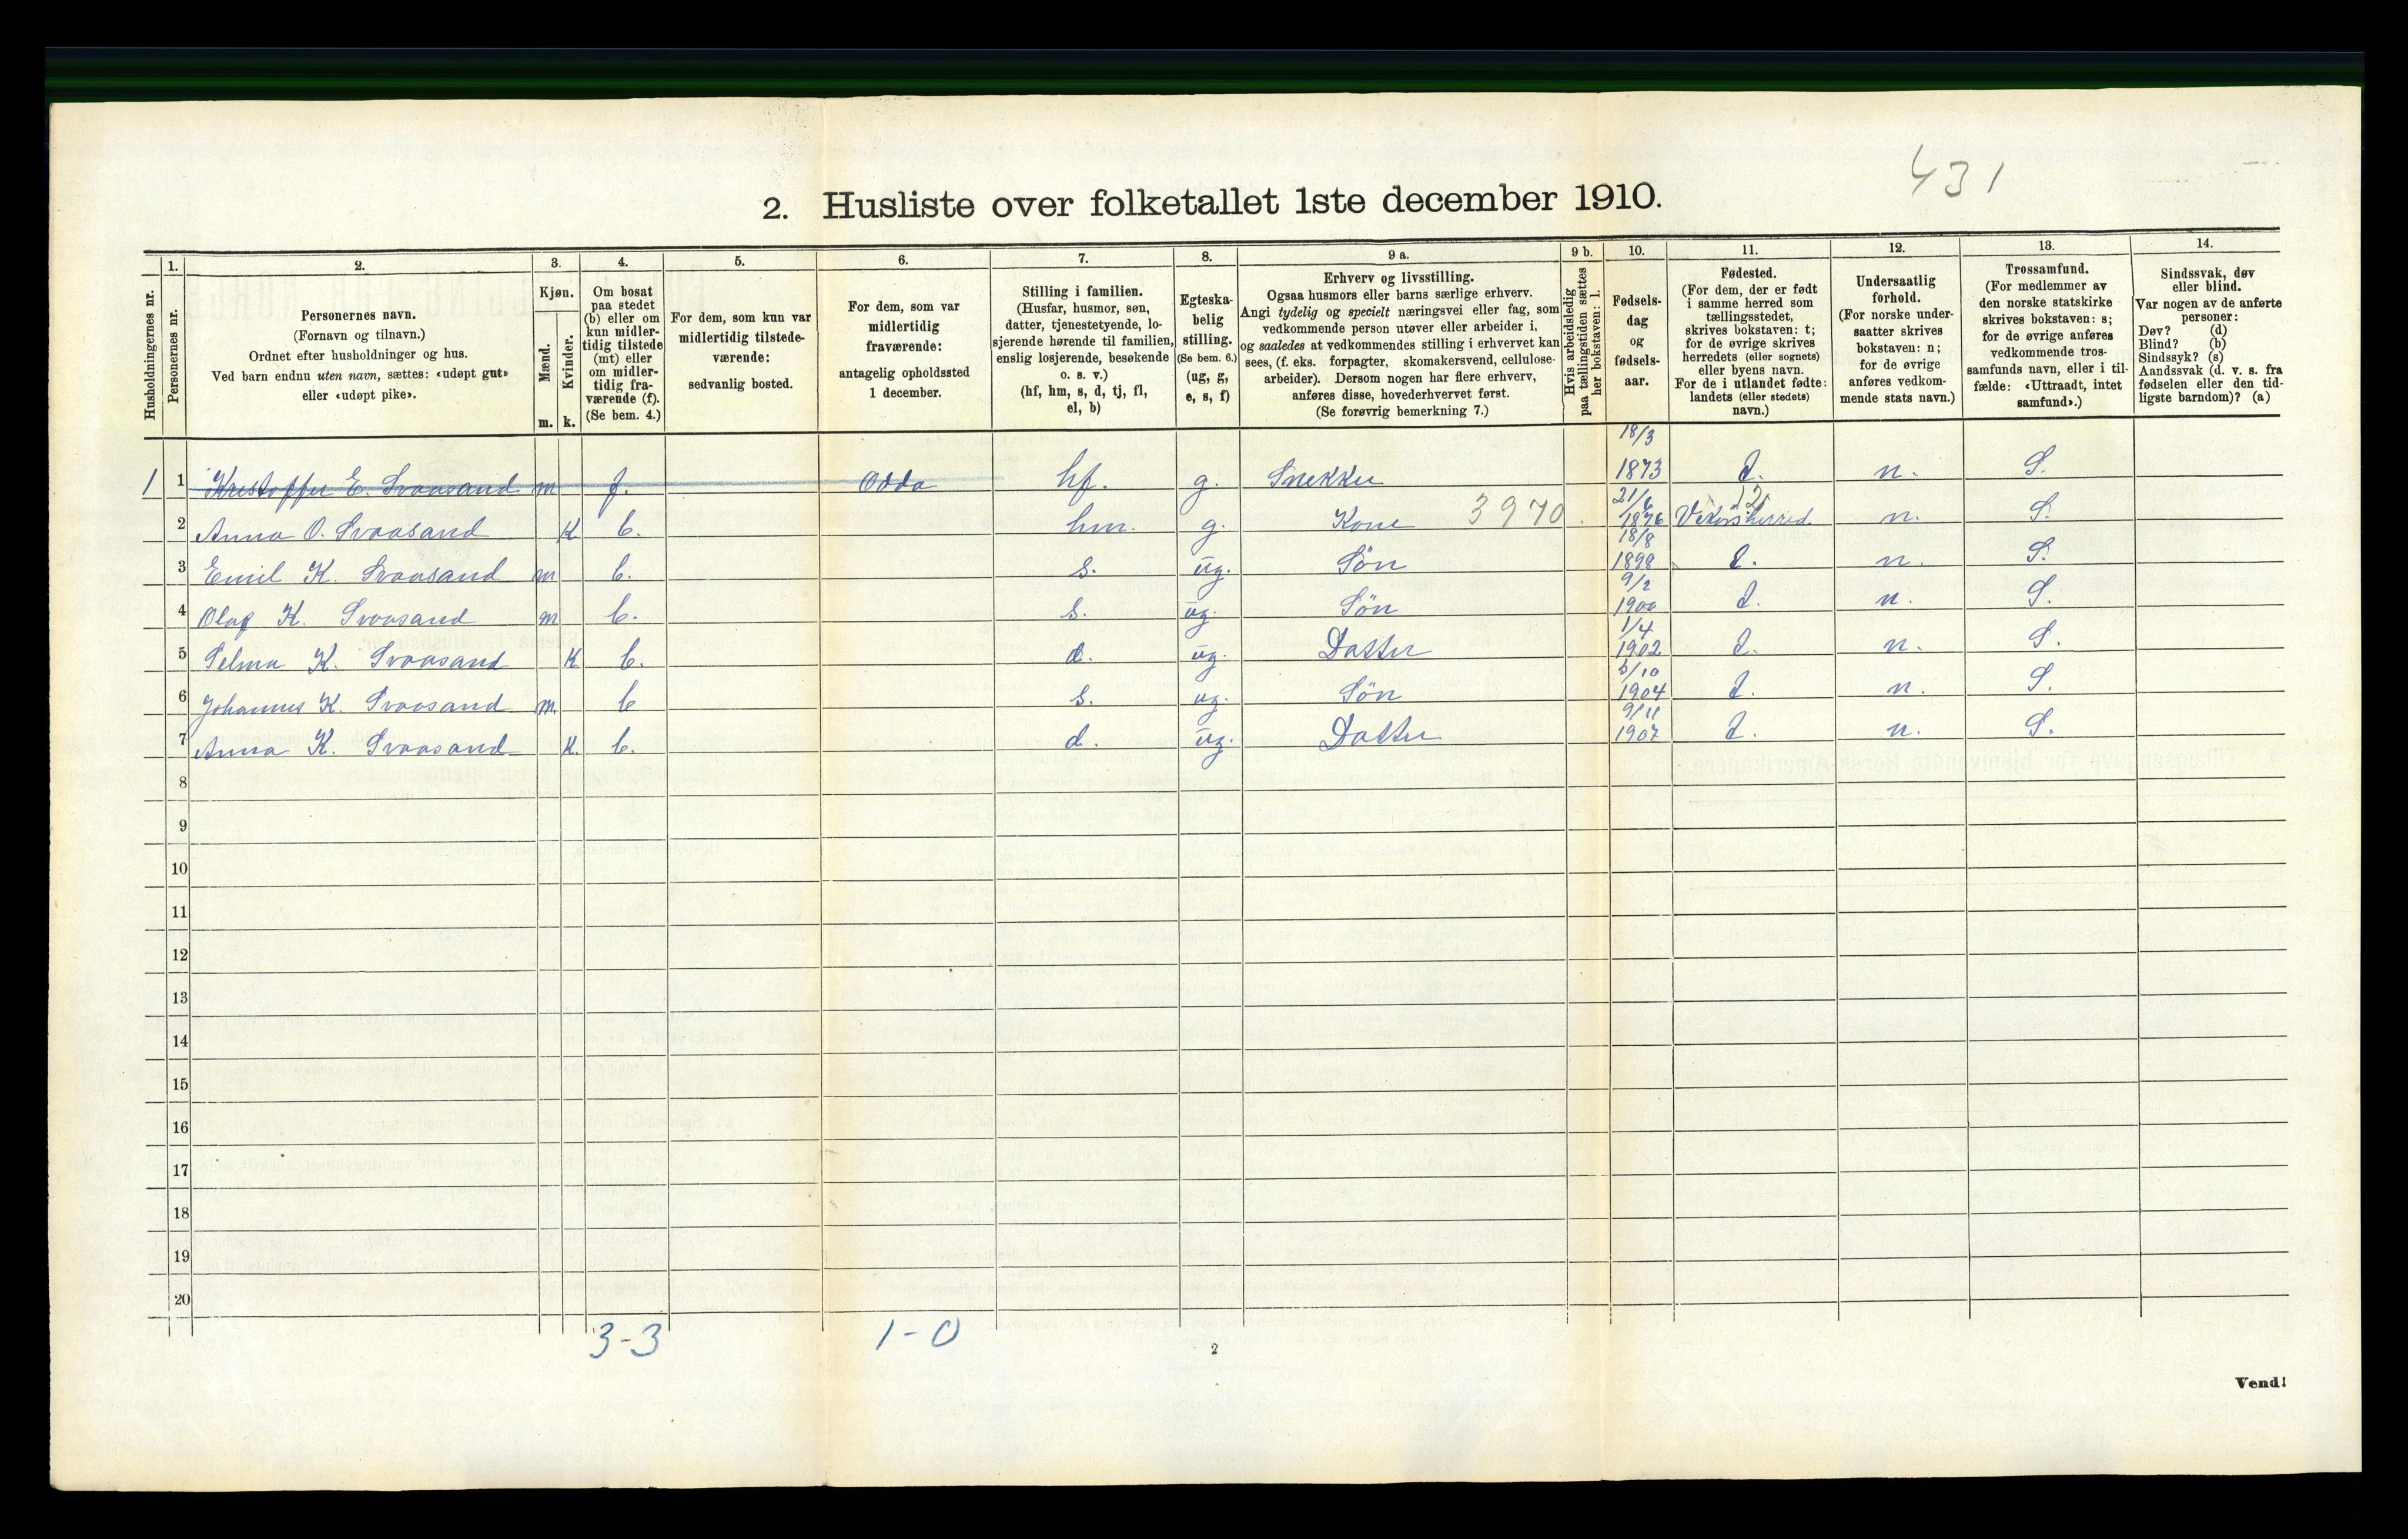 431
2. Husliste over folketallet 1ste december 1910.
Husholdningernes nr.
1.
Personernes nr.
2.
Personernes navn.
(Fornavn og tilnavn.)
Ordnet efter husholdninger og hus.
Ved barn endnu uten navn, sættes: «udøpt gut»
eller «udøpt pike».
3.
Kjøn.
Mænd.
Kvinder.
m. k.
4.
Om bosat
paa stedet
(b) eller om
kun midler-
tidig tilstede
(mt) eller
om midler-
tidig fra-
værende (f).
(Se bem. 4.)
5.
For dem, som kun var
midlertidig tilstede-
værende:
sedvanlig bosted.
6.
For dem, som var
midlertidig
fraværende:
antagelig opholdssted
1 december.
7.
Stilling i familien.
(Husfar, husmor, søn,
datter, tjenestetyende, lo-
sjerende hørende til familien,
enslig losjerende, besøkende
o. s. v.)
(hf, hm, s, d, tj, fl,
el, b)
8.
Egteska-
belig
stilling.
(Se bem. 6.)
(ug, g,
e, s, f)
9 a.
Erhverv og livsstilling.
Ogsaa husmors eller barns særlige erhverv.
Angi tydelig og specielt næringsvei eller fag, som
vedkommende person utøver eller arbeider i,
og saaledes at vedkommendes stilling i erhvervet kan
sees, (f. eks. forpagter, skomakersvend, cellulose-
arbeider). Dersom nogen har flere erhverv,
anføres disse, hovederhvervet først.
(Se forøvrig bemerkning 7.)
9 b.
Hvis arbeidsledig
paa tællingstiden sættes
her bokstaven: l.
10.
Fødsels-
dag
og
fødsels-
aar.
11.
Fødested.
(For dem, der er født
i samme herred som
tællingsstedet,
skrives bokstaven: t;
for de øvrige skrives
herredets (eller sognets)
eller byens navn.
For de i utlandet fødte:
landets (eller stedets)
navn.)
12.
Undersaatlig
forhold.
(For norske under-
saatter skrives
bokstaven: n;
for de øvrige
anføres vedkom-
mende stats navn.)
13.
Trossamfund.
(For medlemmer av
den norske statskirke
skrives bokstaven: s;
for de øvrige anføres
vedkommende tros-
samfunds navn, eller i til-
fælde: «Uttraadt, intet
samfund».)
14.
Sindssvak, døv
eller blind.
Var nogen av de anførte
personer:
Døv? (d)
Blind? (b)
Sindssyk? (s)
Aandssvak (d. v. s. fra
fødselen eller den tid-
ligste barndom)? (a)
1 1 Kristoffer E. Svaasand m f. Odda hf. g. Snekker 18/3 1873 t. n. S.
2 Anna O. Svaasand K b. hm. g. Kone 3970 21/6 1876 12 n. S.
3 Emil K. Svaasand m b. s. ug. Søn 18/8 1898 t. n. S.
4 Olaf K. Svaasand m b. s. ug. Søn 9/2 1900 t. n. S.
5 Selma K. Svaasand K b. d. ug. Datter 1/4 1902 t. n. S.
6 Johannes K. Svaasand m. b s. ug. Søn 5/10 1904 t. n. S.
7 Anna K. Svaasand K. b. d. ug. Datter 9/11 1907 t. n. S.
8
9
10
11
12
13
14
15
16
17
18
19
20
3-3 1-0
2
Vend!